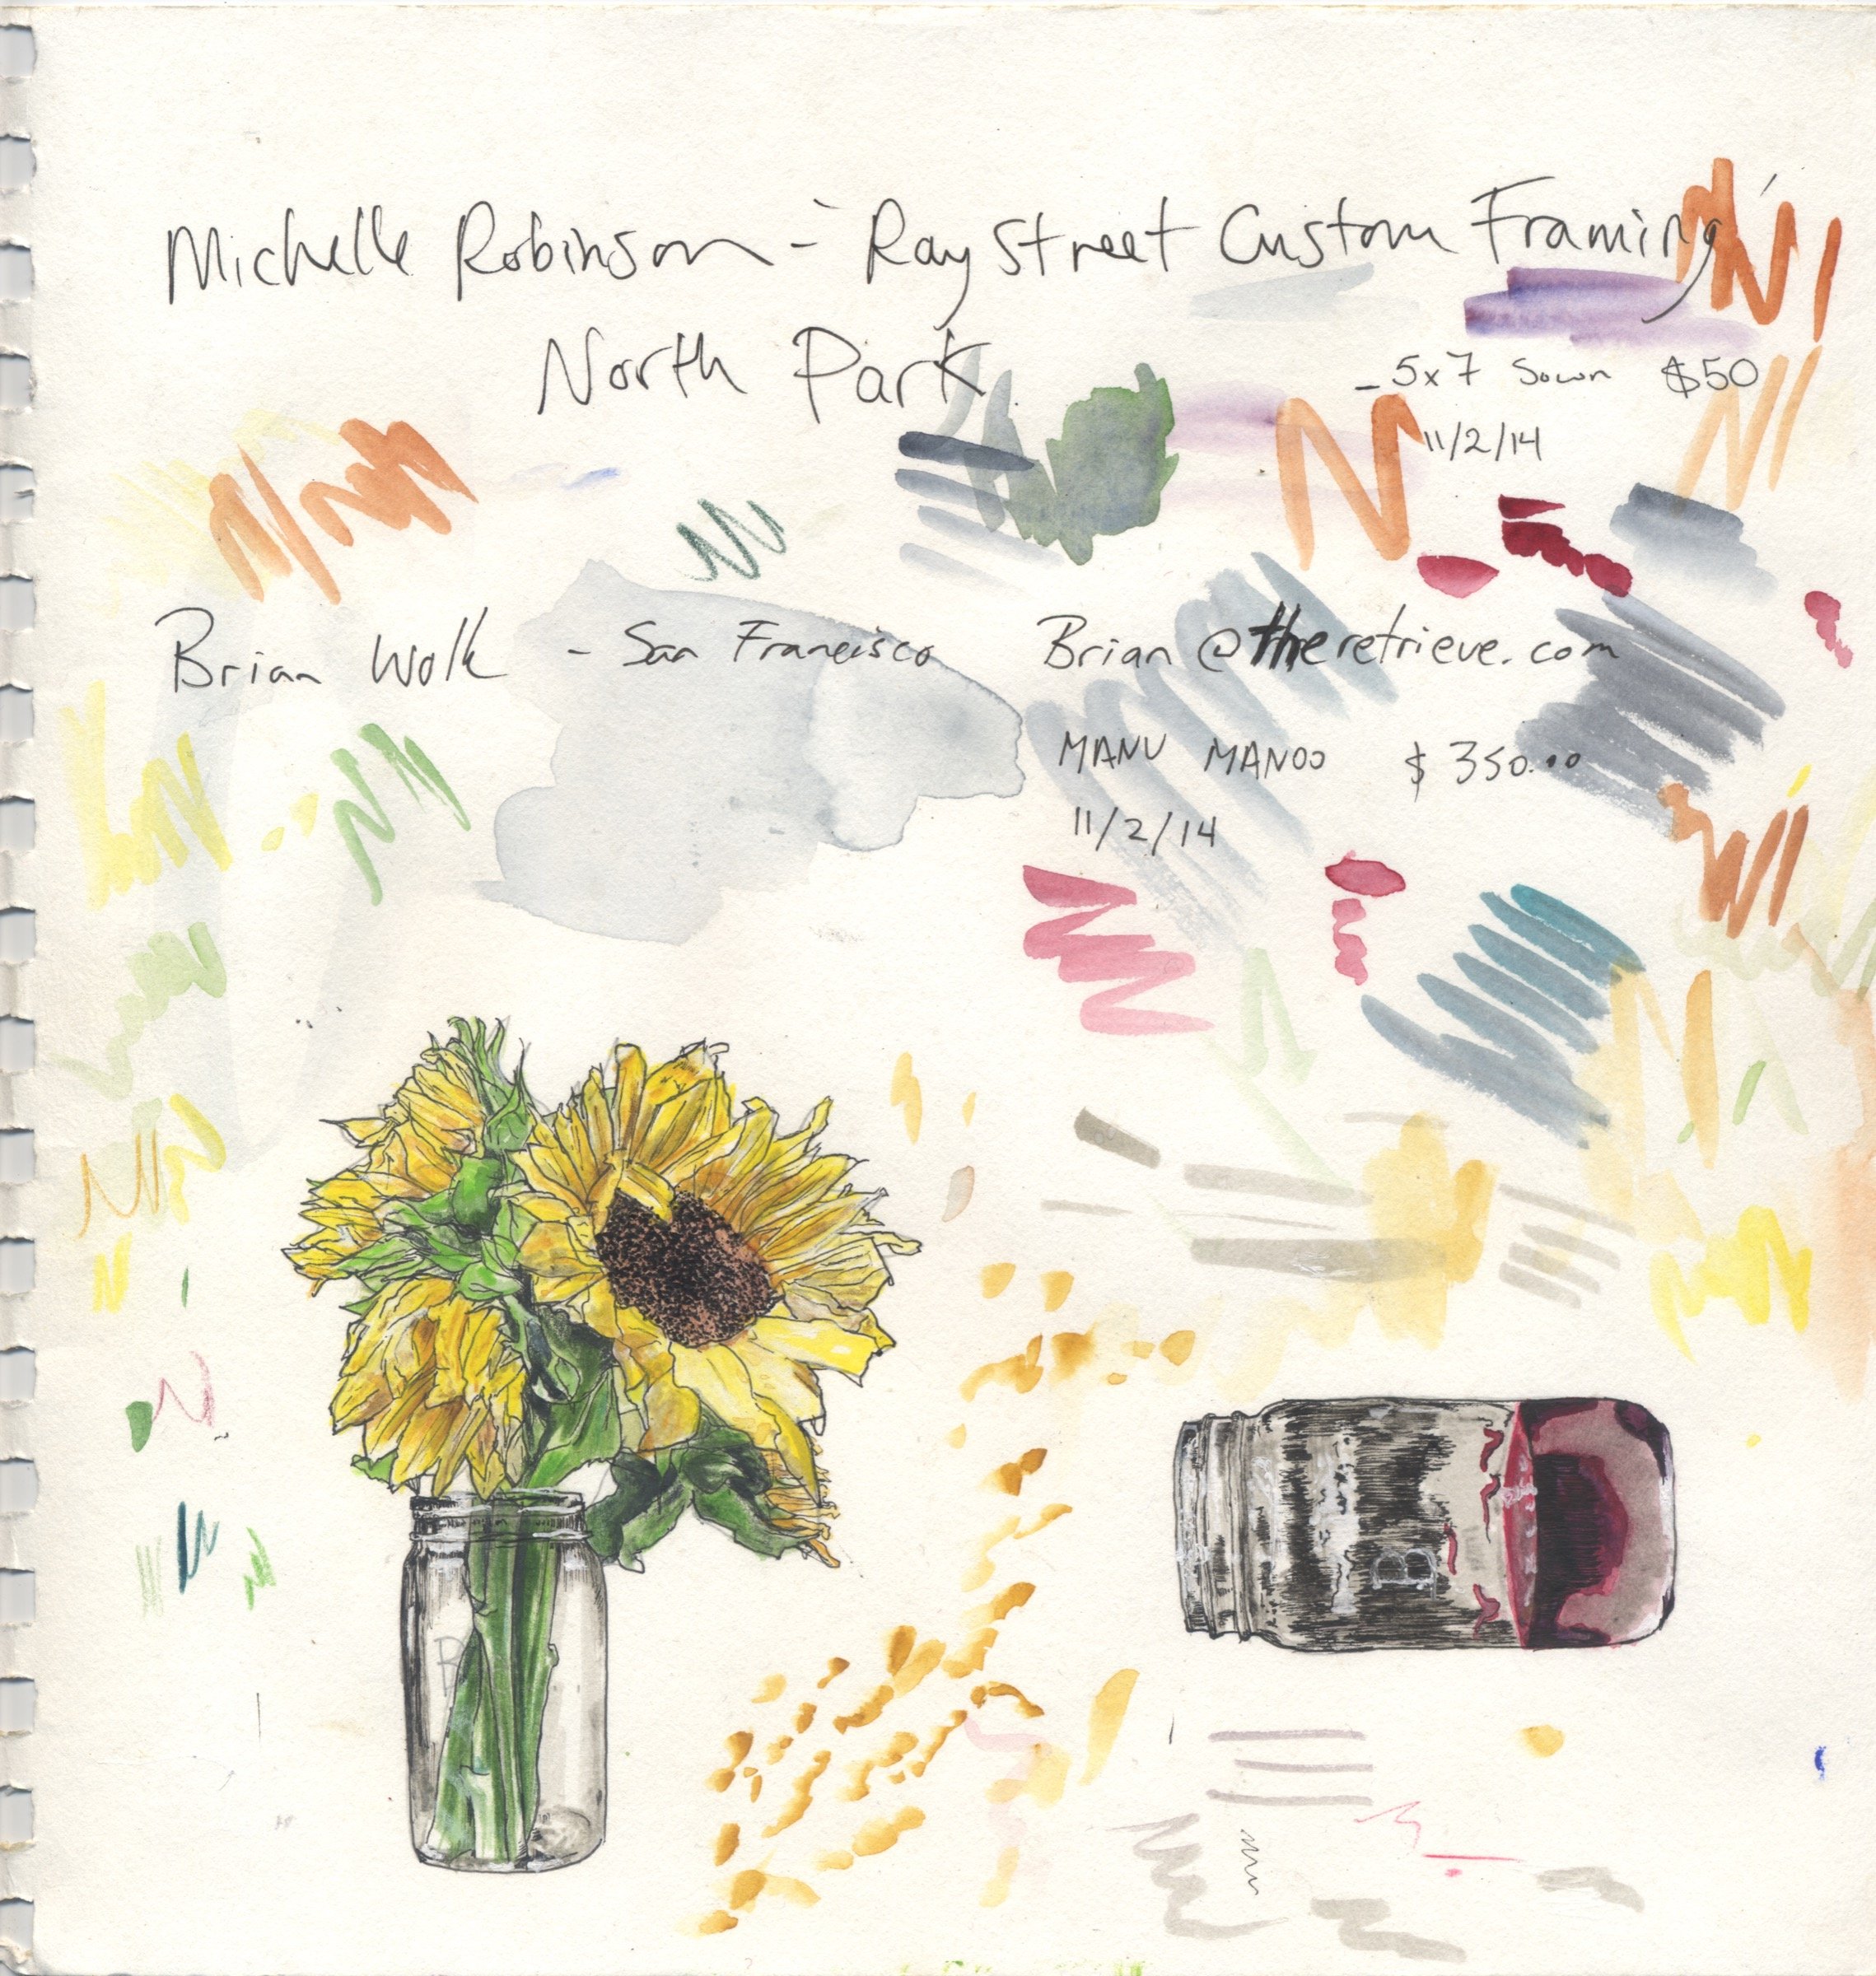 Michelle Robinson - Ray Street Custom Framing
North Park
- 5x7 Sown $50
11/2/14
Brian Wolk - San Francisco Brian@theretrieve.com
MANU MANOO $350.00
11/2/14
B